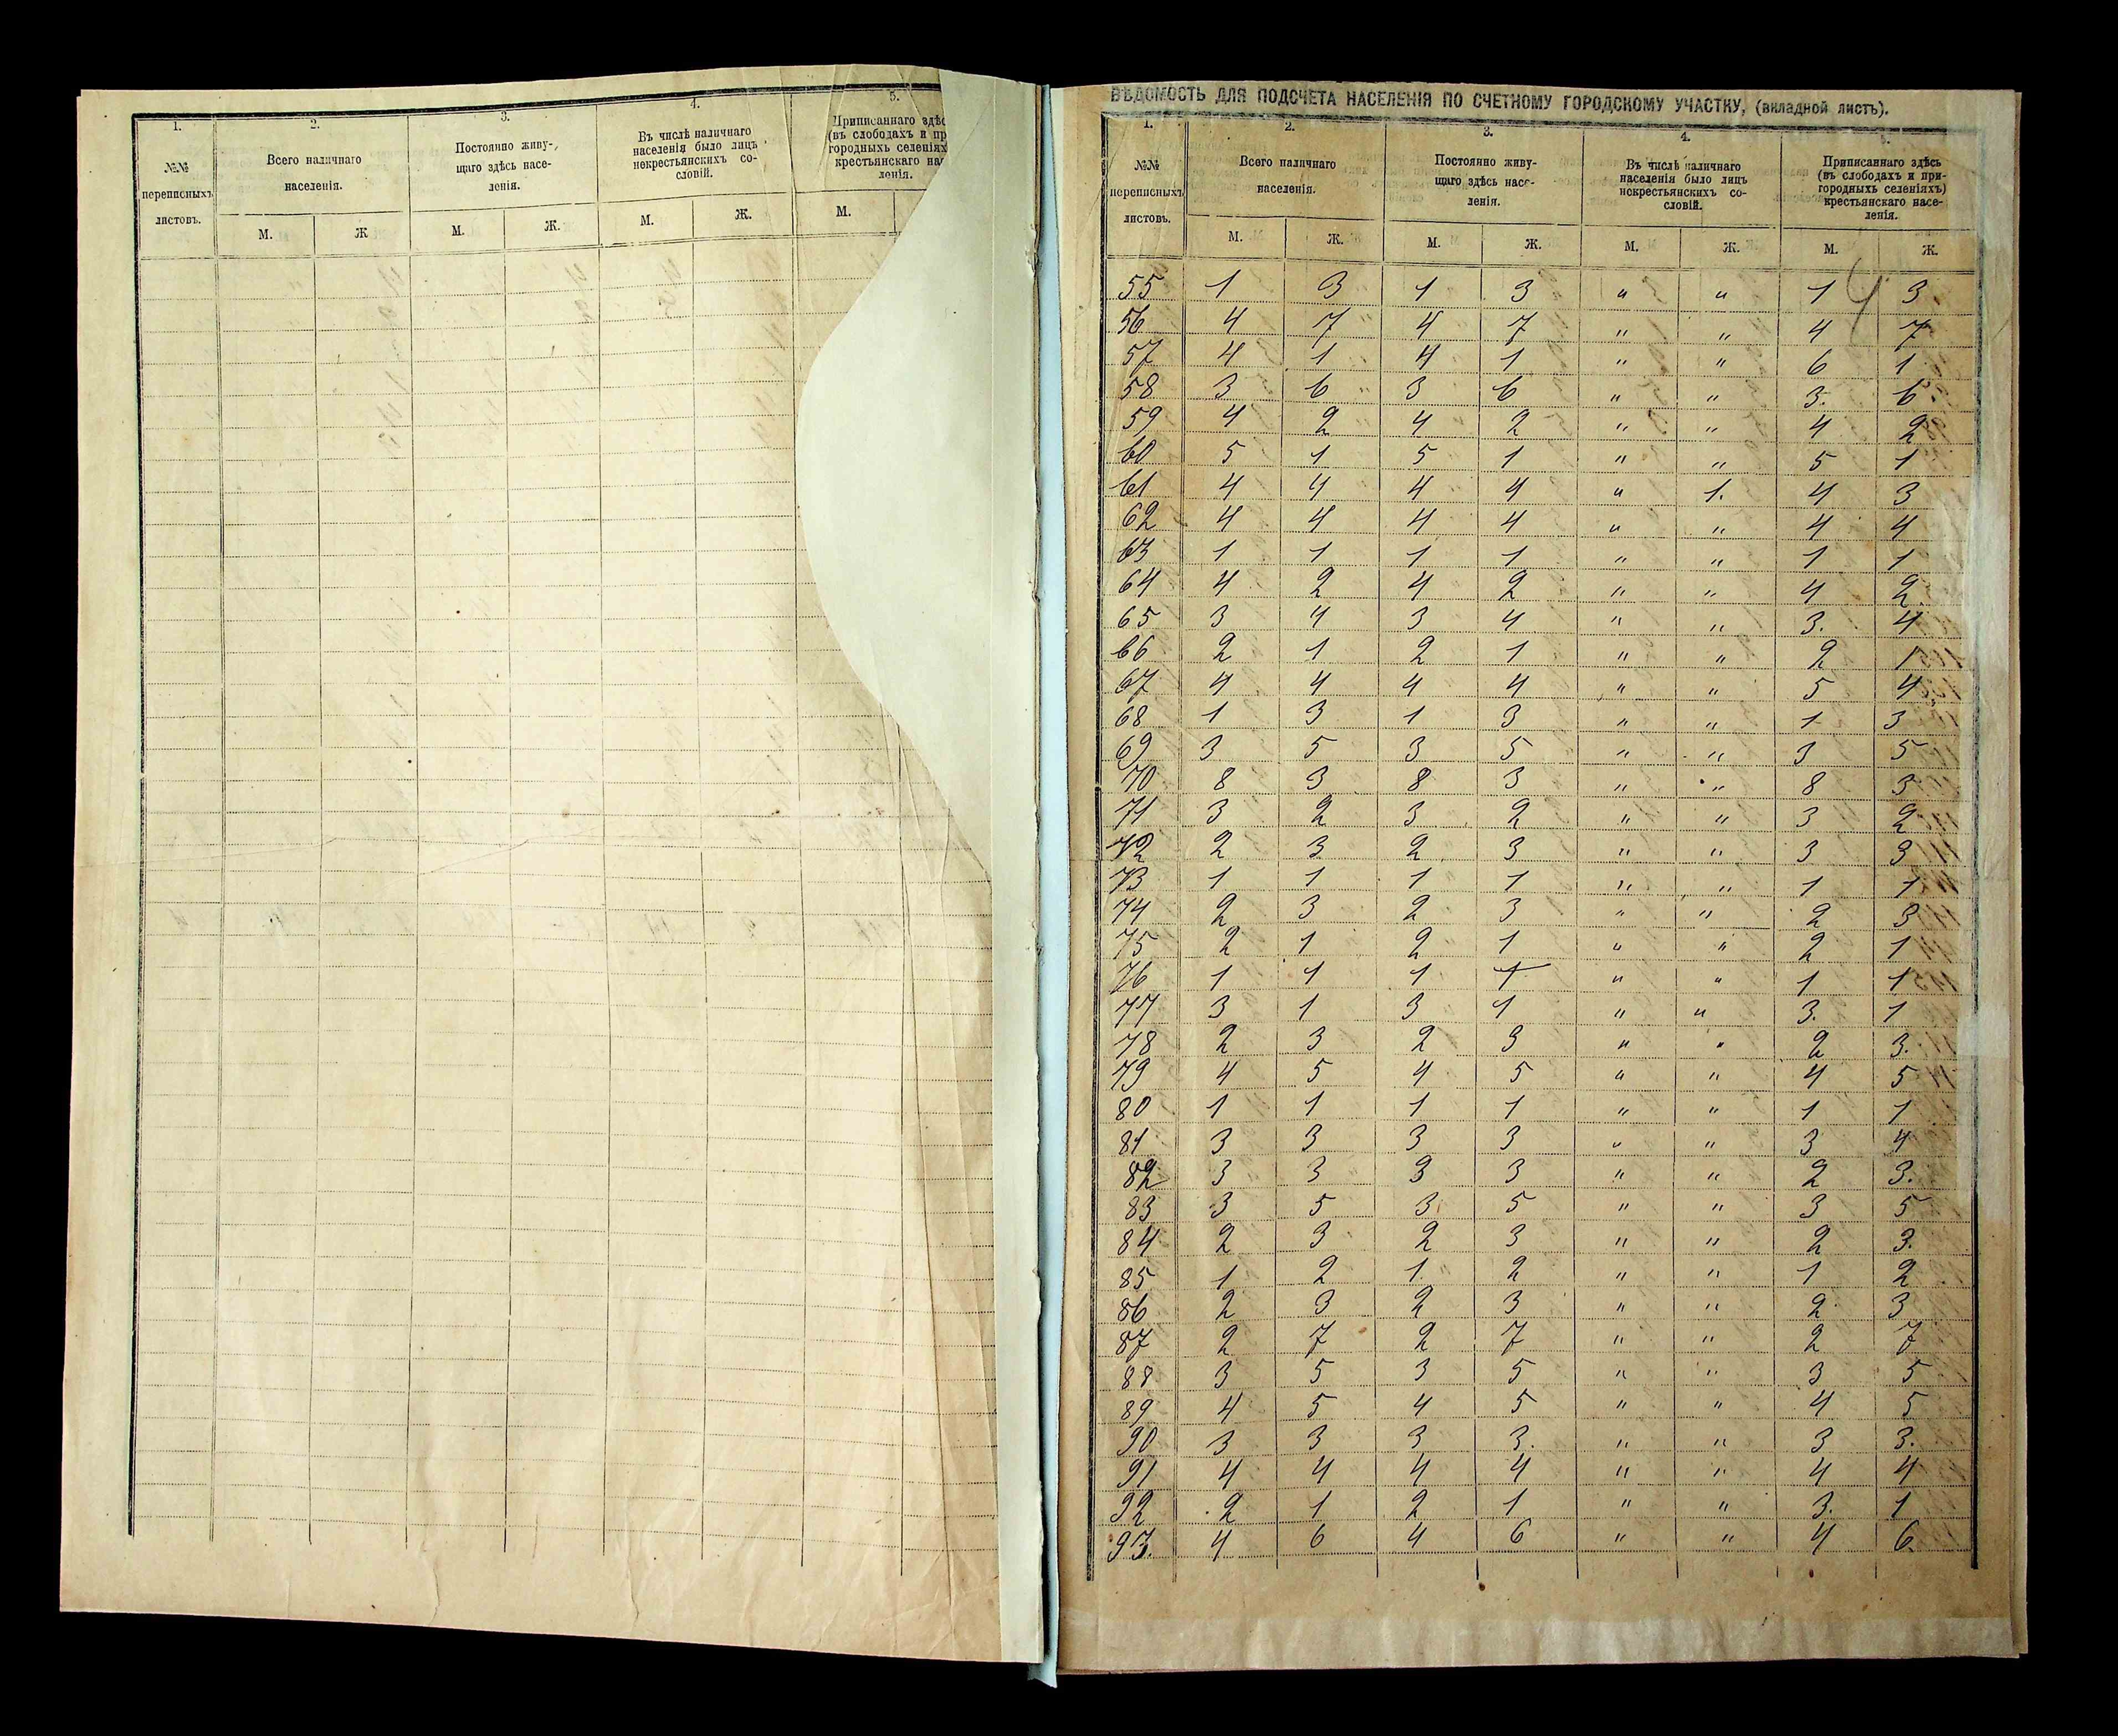 1.
2.
3.
4.
5.
№№
переписныхъ
листовъ.
Всего наличнаго
населенія.
Постоянно живу-
щаго здѣсь насе-
ленія.
Въ числѣ наличнаго
населенія было лицъ
некрестьянскихъ со-
словій.
Приписаннаго
(въ слободахъ и
городныхъ
крестьянскаго
ленія.
М. Ж М. Ж. М. Ж. М.
ВѢДОМОСТЬ ДЛЯ ПОДСЧЕТА НАСЕЛЕНІЯ ПО СЧЕТНОМУ ГОРОДСКОМУ УЧАСТКУ, (вкладной листъ).
1. 2. 3. 4.
№№
переписныхъ
листовъ.
Всего наличнаго
населенія.
Постоянно живу-
щаго здѣсь насе-
ленія.
Въ числѣ наличнаго
населенія было лицъ
некрестьянскихъ со-
словій.
Приписаннаго здѣсь
(въ слободахъ и при-
городныхъ селеніяхъ)
крестьянскаго насе-
ленія.
М. Ж. М. Ж. М. Ж. М. Ж.
4
55 1 3 1 3 " " 1 3
56 4 7 4 7 " " 4 7
57 4 1 4 1 " " 6 1
58 3 6 3 6 " " 3. 6
59 4 2 4 2 " " 4 2
60 5 1 5 1 " " 5 1
61 4 4 4 4 " 1. 4 3
62 4 4 4 4 " " 4 4
63 1 1 1 1 " " 1 1
64 4 2 4 2 " " 4 2
65 3 4 3 4 " " 3. 4
66 2 1 2 1 " " 2 1
67 4 4 4 4 " " 5 4
68 1 3 1 3 " " 1 3
69 3 5 3 5 " " 3 5
70 8 3 8 3 " " 8 3
71 3 2 3 2 " " 3 2
72 2 3 2 3 " " 3 3
73 1 1 1 1 " " 1 1
74 2 3 2 3 " " 2 3
75 2 1 2 1 " " 2 1
76 1 1 1 1 " " 1 1
77 3 1 3 1 " " 3. 1
78 2 3 2 3 " " 2 3.
79 4 5 4 5 " " 4 5
80 1 1 1 1 " " 1 1
81 3 3 3 3 " " 3 4
82 3 3 3 3 " " 2 3.
83 3 5 3 5 " " 3 5
84 2 3 2 3 " " 2 3.
85 1 2 1 2 " " 1 2
86 2 3 2 3 " " 2 3
87 2 7 2 7 " " 2 7
88 3 5 3 5 " " 3 5
89 4 5 4 5 " " 4 5
90 3 3 3 3. " " 3 3.
91 4 4 4 4 " " 4 4
92 2 1 2 1 " " 3. 1
93. 4 6 4 6 " " 4 6.